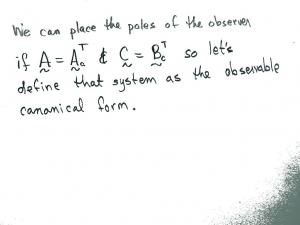 We can place the poles of the observer
if A = Ac^T & C = Bc^T so let's
define that system as the observable
canonical form.